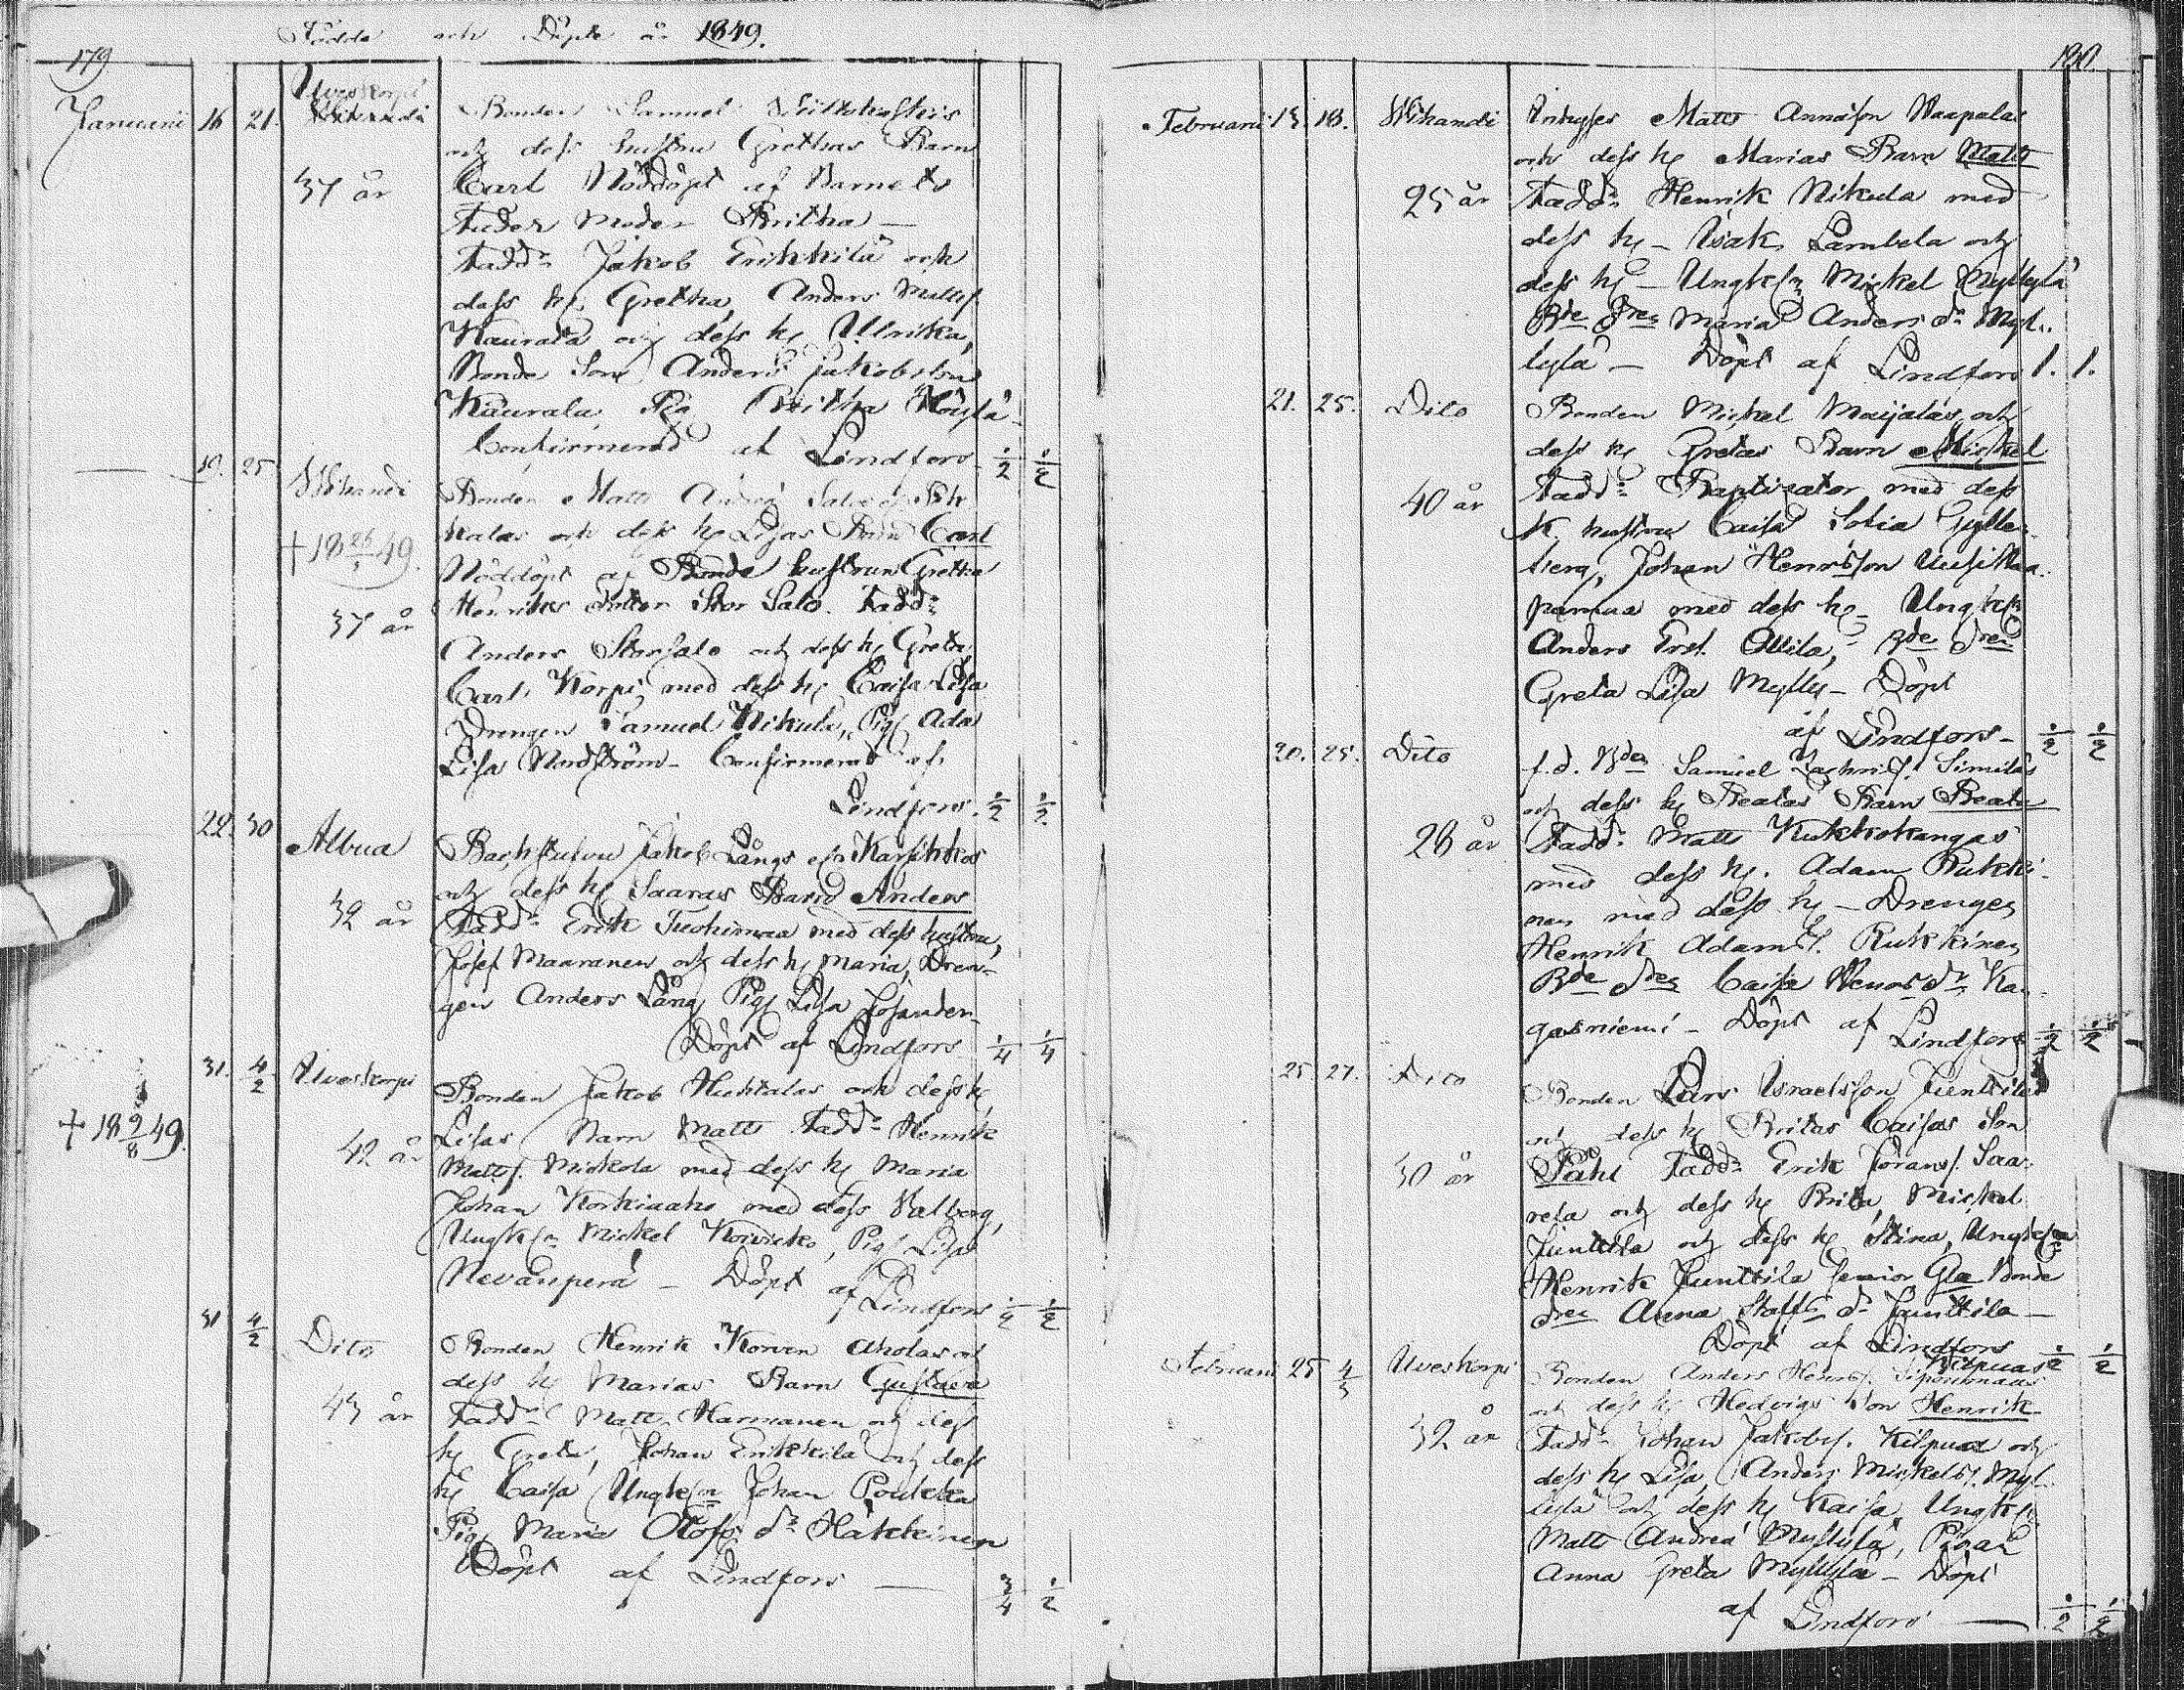 Födde och Döpte år 1849.
179
Uveskorpi
Januarii 16 21. Wihandi Bonden Samuel
och dess hustru Grethas Barn
37 år Carl Nöddöpt af Barnets
Fader Moder Britha —
Fadd: Jakob Erikkilä och
dess h. Gretha, Anders Matts.
Kaurala och dess h. Ulrika,
Bonde Son Anders Jakobsson
Kaurala Pig. Britha
Confirmerad af Lindfors 1/2 1/2
— 19. 25 Wihandi Bonden Matts Andreæ Salo
och dess h. Lisas Barn Carl
+ 18 26/1 49. Nöddöpt af Bonde hustrun Gretha
37 år Henriks dotter Stor Salo. Fadd:
Anders Storsalo och dess h. Greta,
Carl Korpi med dess h. Caisa Lisa
Drengen Samuel Nikula, Pig. Ada
Lisa Nordström — Confirmerad af
Lindfors. 1/2 1/2
22. 30 Albua Jakob Långs Karsikkos
och dess h. Saaras Barn Anders
32 år Fadd: Erik Tuohimaa med dess hustru,
Josef Maaranen och dess h. Maria, Dren-
gen Anders Lång Pig. Lisa Josander —
Döpt af Lindfors 1/4 1/4
31. 4/2 Uveskorpi Bonden Jakob Huhtalas och dess h.
+ 18 9/8 49. Lisas Barn Matts Fadd: Henrik
42 år Matts. Mickola med dess h. Maria
Johan Korkiaaho med dess
Ungk. Mickel Koivisto, Pig. Lisa
Nevanperä — Döpt af Lindfors 1/2 1/2
31 4/2 Dito Bonden Henrik Korven Aholas och
dess h. Marias Barn Gustava
43 år Fadd: Matts Harmanen och dess
h. Greta, Johan Erikkilä och dess
h. Caisa Ungk. Johan Poukka
Pig. Maria Olofs dr Häkkinen
Döpt af Lindfors — 3/4 1/2
180
Februarii 13. 18. Wihandi Inhyses Matts Annasson Haapalas
och dess h. Marias Barn Matts
25 år Fadd: Henrik Nikula med
dess h. — Isak Lambela och
dess h. — Ungk. Mickel Myllylä
Bde dren Maria Anders dr Myl-
lylä — Döpt af Lindfors 1. 1.
21. 25. Dito Bonden Mickel Maijalas och
dess h. Gretas Barn Mickel
40 år Fadd: Baptizator med dess
K. hustru Caisa Sofia Gyllen-
berg, Johan Henriksson
med dess h. — Ungk.
Anders Ersl. Ollila, Bde dren
Greta Lisa Mylly — Döpt
af Lindfors — 1/2 1/2
20. 25. Dito f.d. Bden Samuel Zachris. Similäs
och dess h. Beatas Barn Beata
28 år Fadd: Matts Kukkokangas
med dess h. Adam Rukki-
nen med dess h. — Drengen
Henrik Adams. Rukkinen,
Bde dren Caisa Henrs dr Kan-
gasniemi — Döpt af Lindfors 1/2 1/2
25 27. Dito Bonden Lars Israelsson Junttilas
och dess h. Britas Caisas Son
30 år Påhl Fadd: Erik Göranss. Saa-
rela och dess h. Brita, Mickel
Junttila och dess h. Stina, Ungk.
Henrik Junttila Senior Bonde
dren Anna Staffs dr Junttila —
Döpt af Lindfors 1/2 1/2
Kilpuas
Februarii 25 4/3 Uveskorpi Bonden Anders Henrs. Siponmaas
och dess h. Hedvigs Son Henrik
32 år Fadd: Johan Jakobs. Kilpua och
dess h. Lisa, Anders Mickels. Myl-
lylä och dess h. Kaisa, Ungk.
Matts Andreæ Myllylä, Pigan
Anna Greta Myllylä — Döpt
af Lindfors — 1/2 1/2